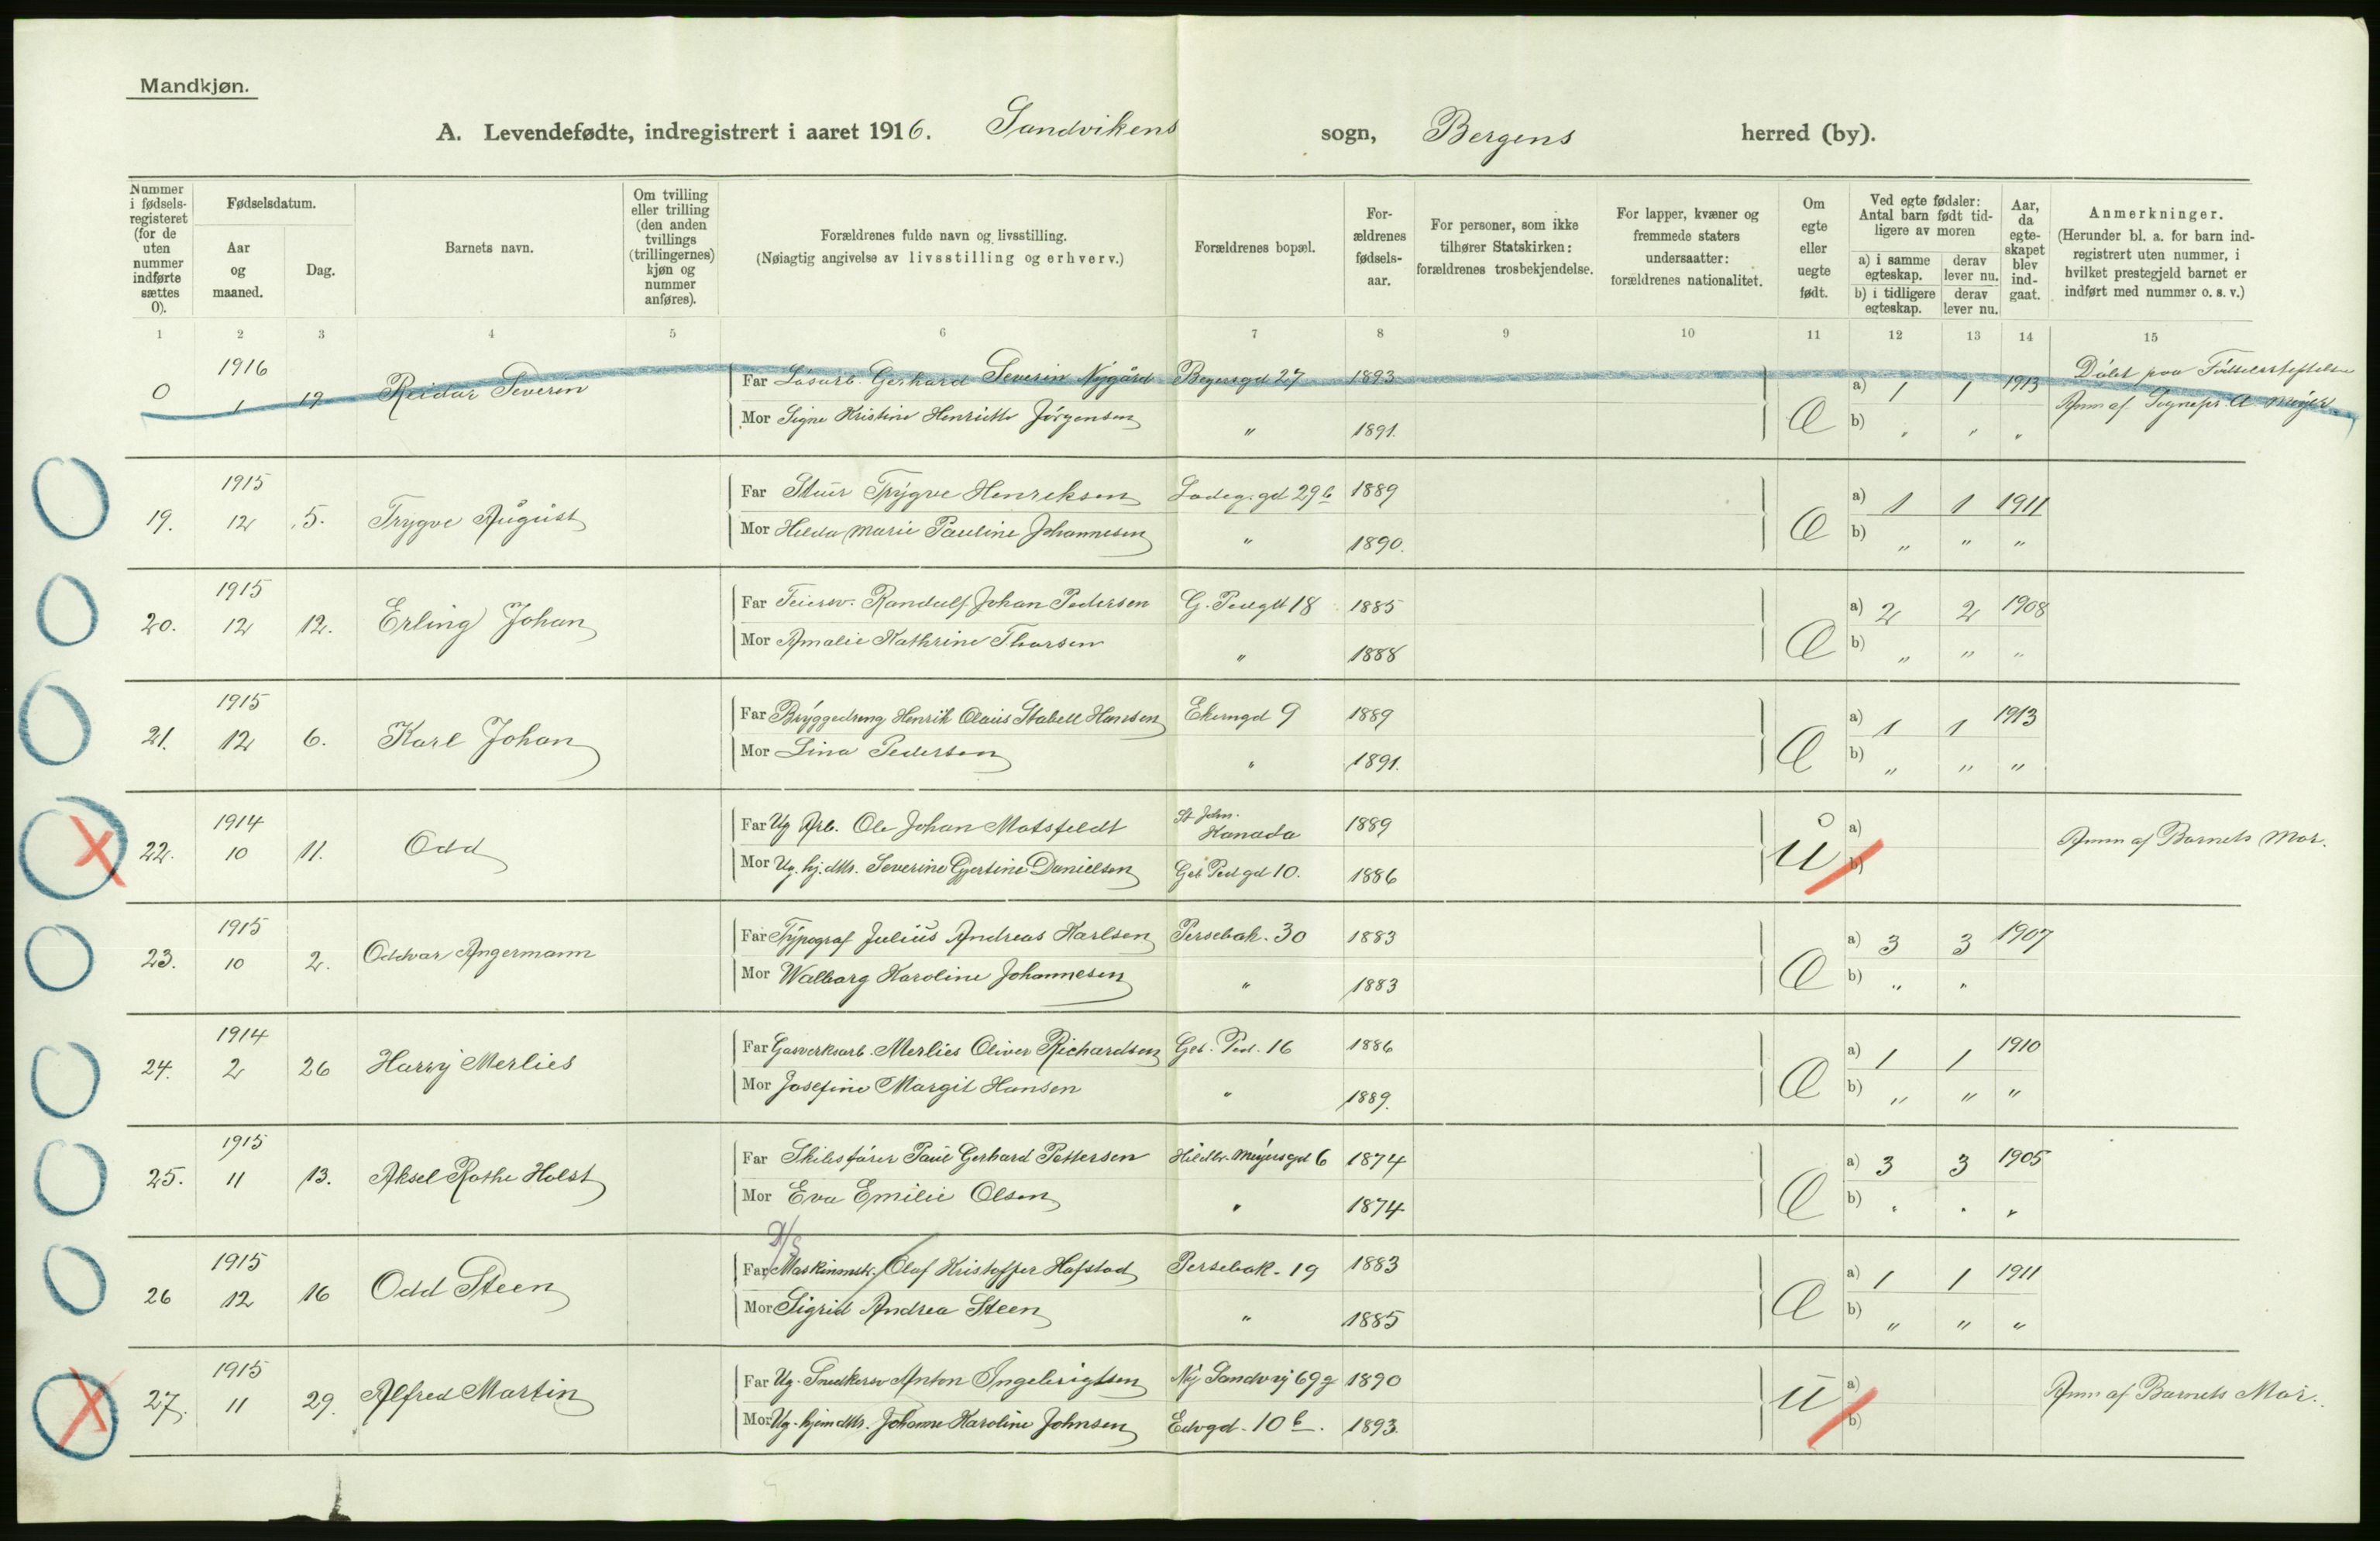 Mandkjøn.
A. Levendefødte, indregistrert i aaret 1916. Sandvikens sogn, Bergens herred (by).
Nummer i fødsels-registeret (for de uten nummer indførte sættes 0).
Fødselsdatum.
Aar og maaned.
Dag.
Barnets navn.
Om tvilling eller trilling (den anden tvillings (trillingernes) kjøn og nummer anføres).
Forældrenes fulde navn og livsstilling.
(Nøiagtig angivelse av livsstilling og erhverv.)
Forældrenes bopæl.
For-ældrenes fødsels-aar.
For personer, som ikke tilhører Statskirken: forældrenes trosbekjendelse.
For lapper, kvæner og fremmede staters undersaatter: forældrenes nationalitet.
Om egte eller uegte født.
Ved egte fødsler: Antal barn født tid-ligere av moren
a) i samme egteskap.
derav lever nu.
b) i tidligere egteskap.
derav lever nu.
Aar, da egte-skapet blev ind-gaat.
Anmerkninger.
(Herunder bl. a. for barn ind-registrert uten nummer, i hvilket prestegjeld barnet er indført med nummer o. s. v.)
1 2 3 4 5 6 7 8 9 10 11 12 13 14 15
1916
0 1 19 Reidar Severin
Far Løsarb. Gerhard Severin Nygård Beyersgd 27 1893 a) 1 1 1913
Mor Signe Kristine Henriette Jörgensen " 1891. Æ b) " " "
Döbt paa Födselsstiftelsen
Anm af Sognepr. A. Meyer
1915
19. 12 5. Trygve August
Far Stuer Trygve Henriksen Ladeg.gd 29b 1889 a) 1 1 1911
Mor Hilda Marie Pauline Johannesen " 1890. Æ b) " " "
1915
20. 12 12. Erling Johan
Far Feiersv. Randulf Johan Pedersen G. Pedgd 18 1885 a) 2 2 1908
Mor Amalie Kathrine Thorsen " 1888 Æ b) " " "
1915
21. 12 6. Karl Johan
Far Bryggedreng Henrik Olaus Stabell Hansen Ekerngd 9 1889 a) 1 1 1913
Mor Lina Pedersen " 1891. Æ b) " " "
1914
22. 10 11. Odd
Far Ug Arb. Ole Johan Matsfeldt St John. Kanada 1889 a)
Mor Ug. hj. dttr. Severine Gjertine Danielsen Geb Ped gd 10. 1886 U b)
Anm af Barnets Mor.
1915
23. 10 2. Oddvar Angermann
Far Typograf Julius Andreas Karlsen Persebak. 30 1883 a) 3 3 1907
Mor Walborg Karoline Johannesen " 1883 Æ b) " "
1914
24. 2 26 Harry Merlies
Far Gasverksarb. Merlies Oliver Richardsen Geb. Ped. 16 1886 a) 1 1 1910
Mor Josefine Margit Hansen " 1889. Æ b) " " "
1915
25. 11 13. Aksel Rothe Holst
Far Skibsfører Paul Gerhard Pettersen Hildbr. Meyersgd 6 1874 a) 3 3 1905
Mor Eva Emilie Olsen " 1874 Æ b) " " "
1915
26 12 16 Odd Steen
Far Maskinmstr. Olaf Kristoffer Hafstad Persebak. 19 1883 a) 1 1 1911
Mor Sigrid Andrea Steen " 1885 Æ b) " " "
1915
27. 11 29. Alfred Martin
Far Ug. Snedkersv Anton Ingebrigtsen Ny Sandvij 69g 1890 a)
Mor Ug. hjemdttr. Johanne Karoline Johnsen Edvgd. 10b. 1893. U b)
Anm af Barnets Mor.